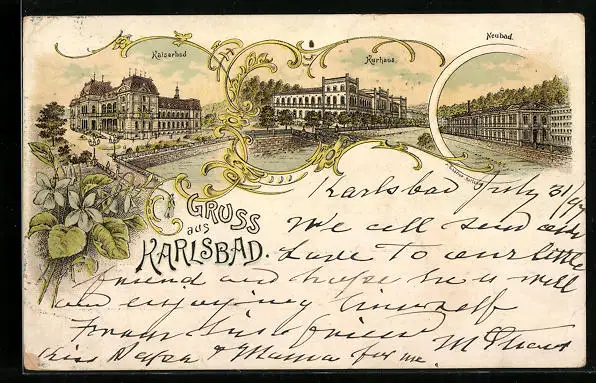 Kaiserbad
Kurhaus.
Neubad.
GRUSS
aus
KARLSBAD.
Karlsbad July 31/97
We all send our
Love to our little
friend and hope he is well
and enjoying himself
From his friend
Kiss Papa & Mama for me.